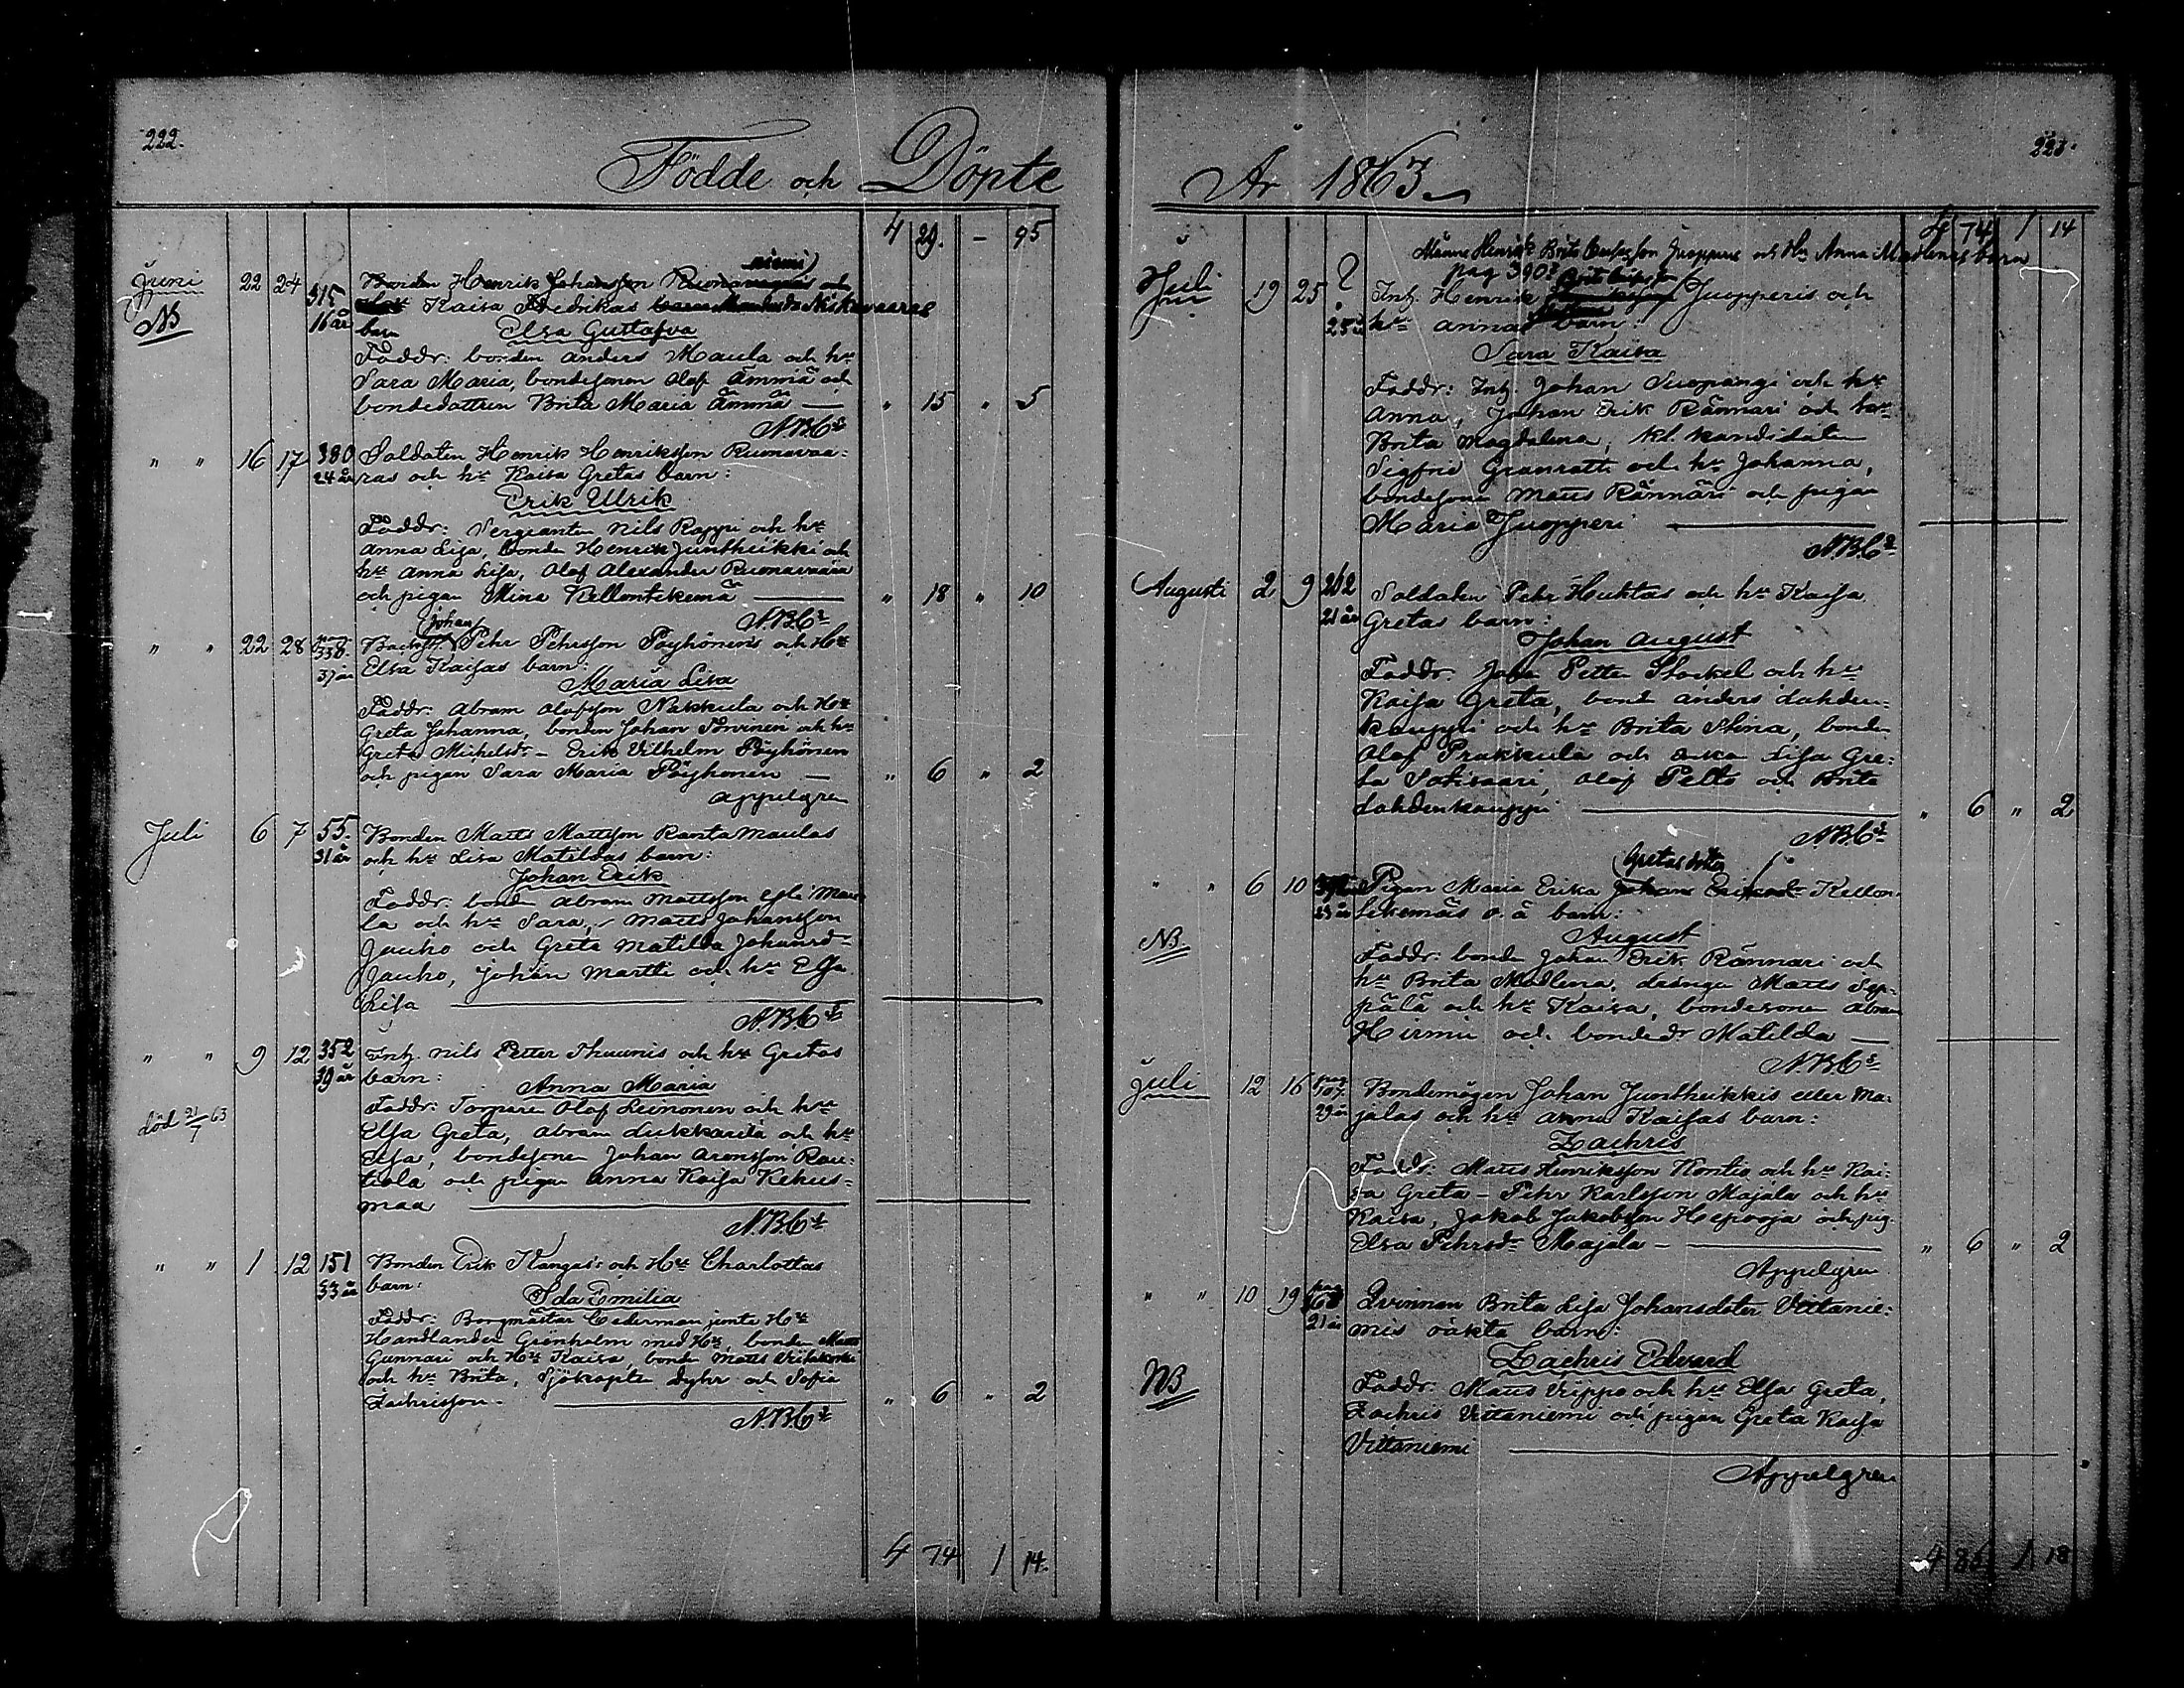 222.
Födde och Döpte
4 29. - 95
niemi)
Juni 22 24 315 Bonden Henrik Johansson Ruona och
NB 16 år Kaisa Fredrikas
barn Elsa Gustafva
Faddr: bonden Anders Maula och hu
Sara Maria, bondesonen Olof Ämmä och
bondedottren Brita Maria Ämmä — " 15 " 5
N.B.C.
" " 16 17 380 Soldaten Henrik Henriksson Ruonavaa:
24 år ras och hu Kaisa Gretas barn:
Erik Ulrik
Faddr: Sergeanten Nils Rappi och hu
Anna Lisa, bonden Henrik Junttheikki och
hu Anna Lisa, Olof Alexander Ruonavaara
och pigan Mina Kellontekemä — " 18 " 10
N.B.C.
(Johan)
" " 22 28 pag. 338 Pehr Pehrsson Pöyhönens och Hu
37 år Elsa Kaisas barn:
Maria Lisa
Faddr: Abram Olofsson Nikkula och Hu
Greta Johanna, bonden Johan Torvinen och hu
Greta Michelsdr - Erik Vilhelm Pöyhönen
och pigan Sara Maria Pöyhonen — " 6 " 2
Appelgren
Juli 6 7 55. Bonden Matts Mattsson Ranta Maulas
31 år och hu Lisa Matildas barn:
Johan Erik
Faddr: bonden Abram Mattsson Mau-
la och hu Sara, Matts Johansson
Jauho och Greta Matilda Johansd
Jauho, Johan Martti och hu Elsa
Lisa —
N.B.C.
" " 9 12 352 Inh. Nils Petter Thuunis och hu Gretas
39 år barn:
Anna Maria
död 21/7 63 Faddr: Torparen Olof Leinonen och hu
Elsa Greta, Abram Lukkarila och hu
Elsa, bondesonen Johan Aronsson Rau:
tiola och pigan Anna Kaisa Kehus=
maa —
N.B.C.
" " 1 12 151 Bonden Erik Kangas's och Hu Charlottas
33 år barn:
Ida Emilia
Faddr: Borgmästar Cederman jemte Hu
Handlanden Grönholm med Hu, bonden Matts
Gunnari och Hu Kaisa, bonden Matts
och hu Brita, Sjökapten Dyhr och Sofia
Zachrisson. — " 6 " 2
N.B.C.
4 74 1 14.
År 1863
223.
4 74 1 14
Henrik Brits Gustafsson Juopperis och Hu Anna Madlenas barn
pag 390?
Juli 19 25 ? Inh. Henrik Juopperis och
25 år hu Annas barn:
Sara Kaisa
Faddr: Inh. Johan Suopangi och hu
Anna, Johan Erik Rännari och hu
Brita Magdalena, kl. kandidaten
Sigfrid Granratt och hu Johanna,
bondesonen Matts Rännäri och pigan
Maria Juopperi —
N.B.C.
Augusti 2 9 262 Soldaten Pehr Huktas och hu Kaisa
21 år Gretas barn:
Johan August
Faddr. Joh. Petter Stockel och hu
Kaisa Greta, bond Anders Lahden:
kauppi och hu Brita Stina, bonden
Olof Prakkula och enkan Lisa Gre:
ta Sotisaari, Olof Pelto och Brita
Lahdenkauppi — " 6 " 2
N.B.C.
(Gretas dotter)
" " 6 10 Pigan Maria Erika Johans Kellon-
23 år tekemäs o. ä barn:
NB August
Faddr: bonden Johan Erik Rännari och
hu Brita Madlena, drängen Matts Sep-
pälä och hu Kaisa, bondesonen Abram
Hirmu och bonded Matilda —
N.B.C.
Juli 12 16 pag 107. Bondemågen Johan Junttheikkis eller Ma:
29 år jalas och hu Anna Kaisas barn:
Zachris
Faddr: Matts Henriksson Kontio och hu Kai:
sa Greta - Pehr Karlsson Majala och hu
Kaisa, Jakob Jakobsson Hepooja och pig.
Elsa Pehrsd Majala — " 6 " 2
Appelgren
" " 10 19 pag Qvinnan Brita Lisa Johansdoter Vittanie:
21 år mis oäkta barn:
Zachris Edvard
NB Faddr: Matts Vippo och hu Elsa Greta,
Zachris Vittaniemi och pigan Greta Kaisa
Vittaniemi —
Appelgren
4 86 1 18